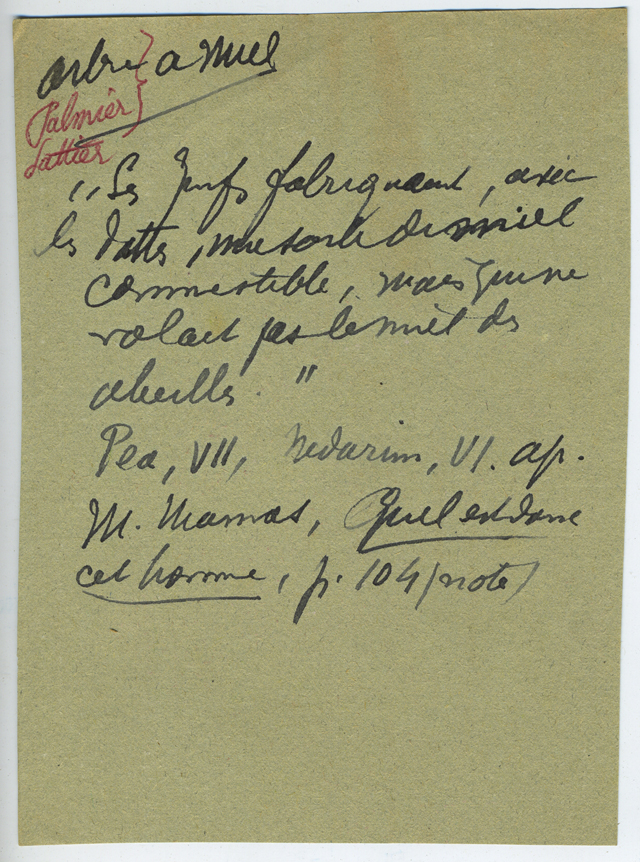 arbre à miel
Palmier
dattier
"Les Juifs fabriquaient, avec
les dattes, une sorte de miel
commestible, mais qui ne
valait pas le miel des
abeilles."
Pea, VII, Nedarim, VI. ap.
M. Mamas, Quel est donc
cet homme, p. 104 (note)